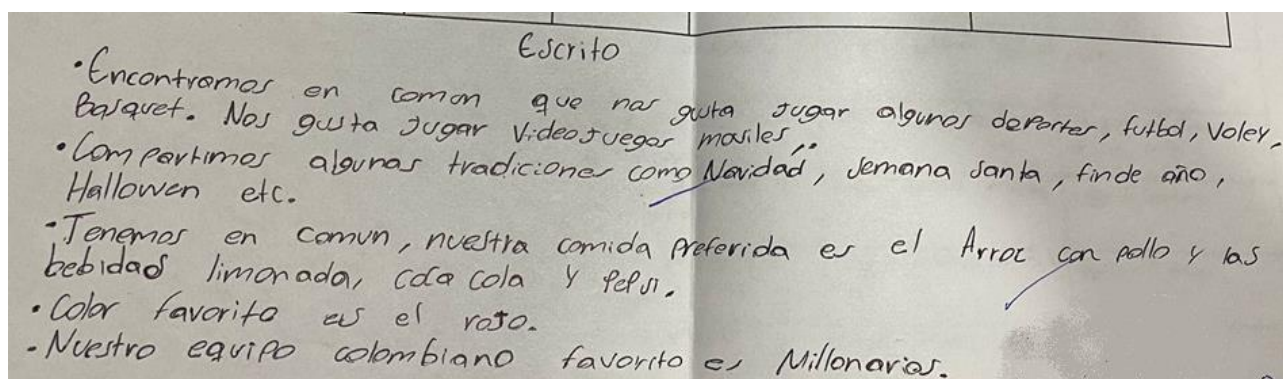 Escrito
• Encontramos en comon que nos gusta Jugar algunos deportes, futbol, Voley,
Basquet. Nos gusta Jugar VideoJuegos moviles,.
• Compartimos algunas tradiciones como Navidad, Semana Santa, finde año,
Hallowen etc.
- Tenemos en comun, nuestra comida preferida es el Arroz con pollo y las
bebidas limonada, coca cola y pepsi.
• Color favorito es el roJo.
- Nuestro equipo colombiano favorito es Millonarios.